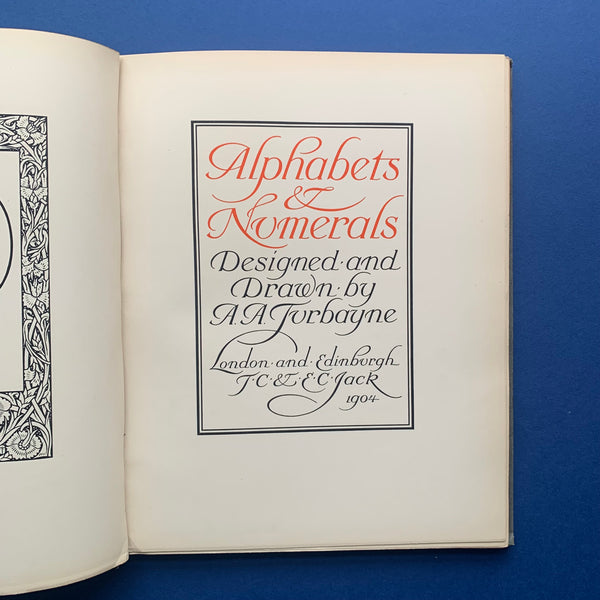 Alphabets
&
Nvmerals
Designed·and
Drawn·by
A.A.Tvrbayne
London·and·Edinbvrgh
T·C·&·E·C·Jack
1904